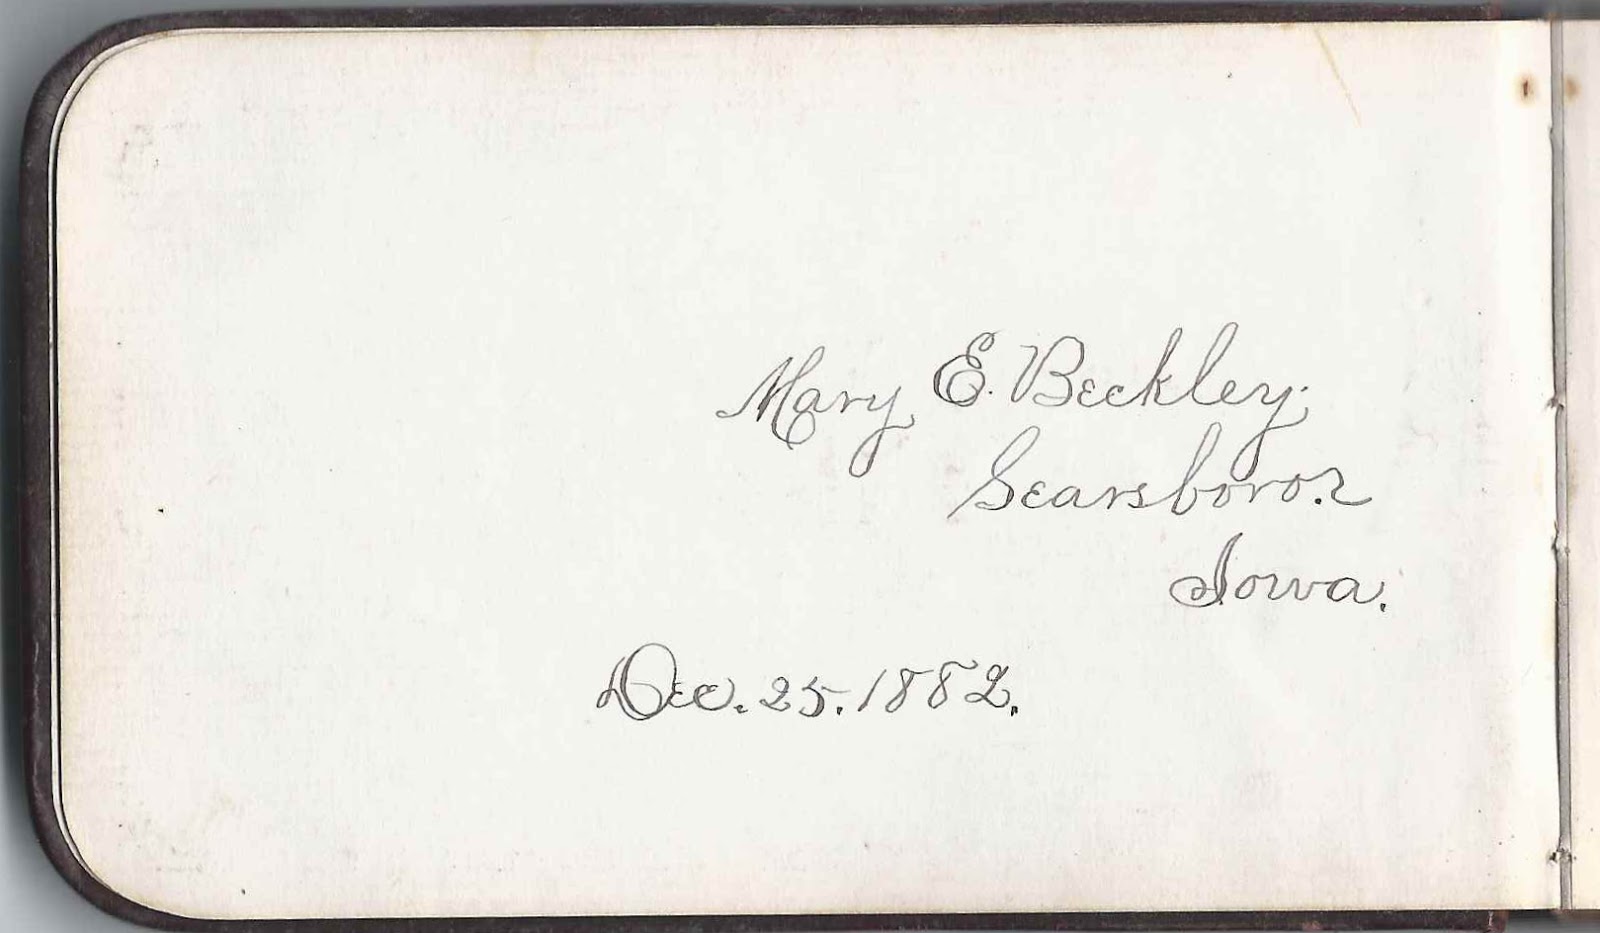 Mary E. Beckley.
Searsboro.
Iowa.
Dec. 25. 1882.